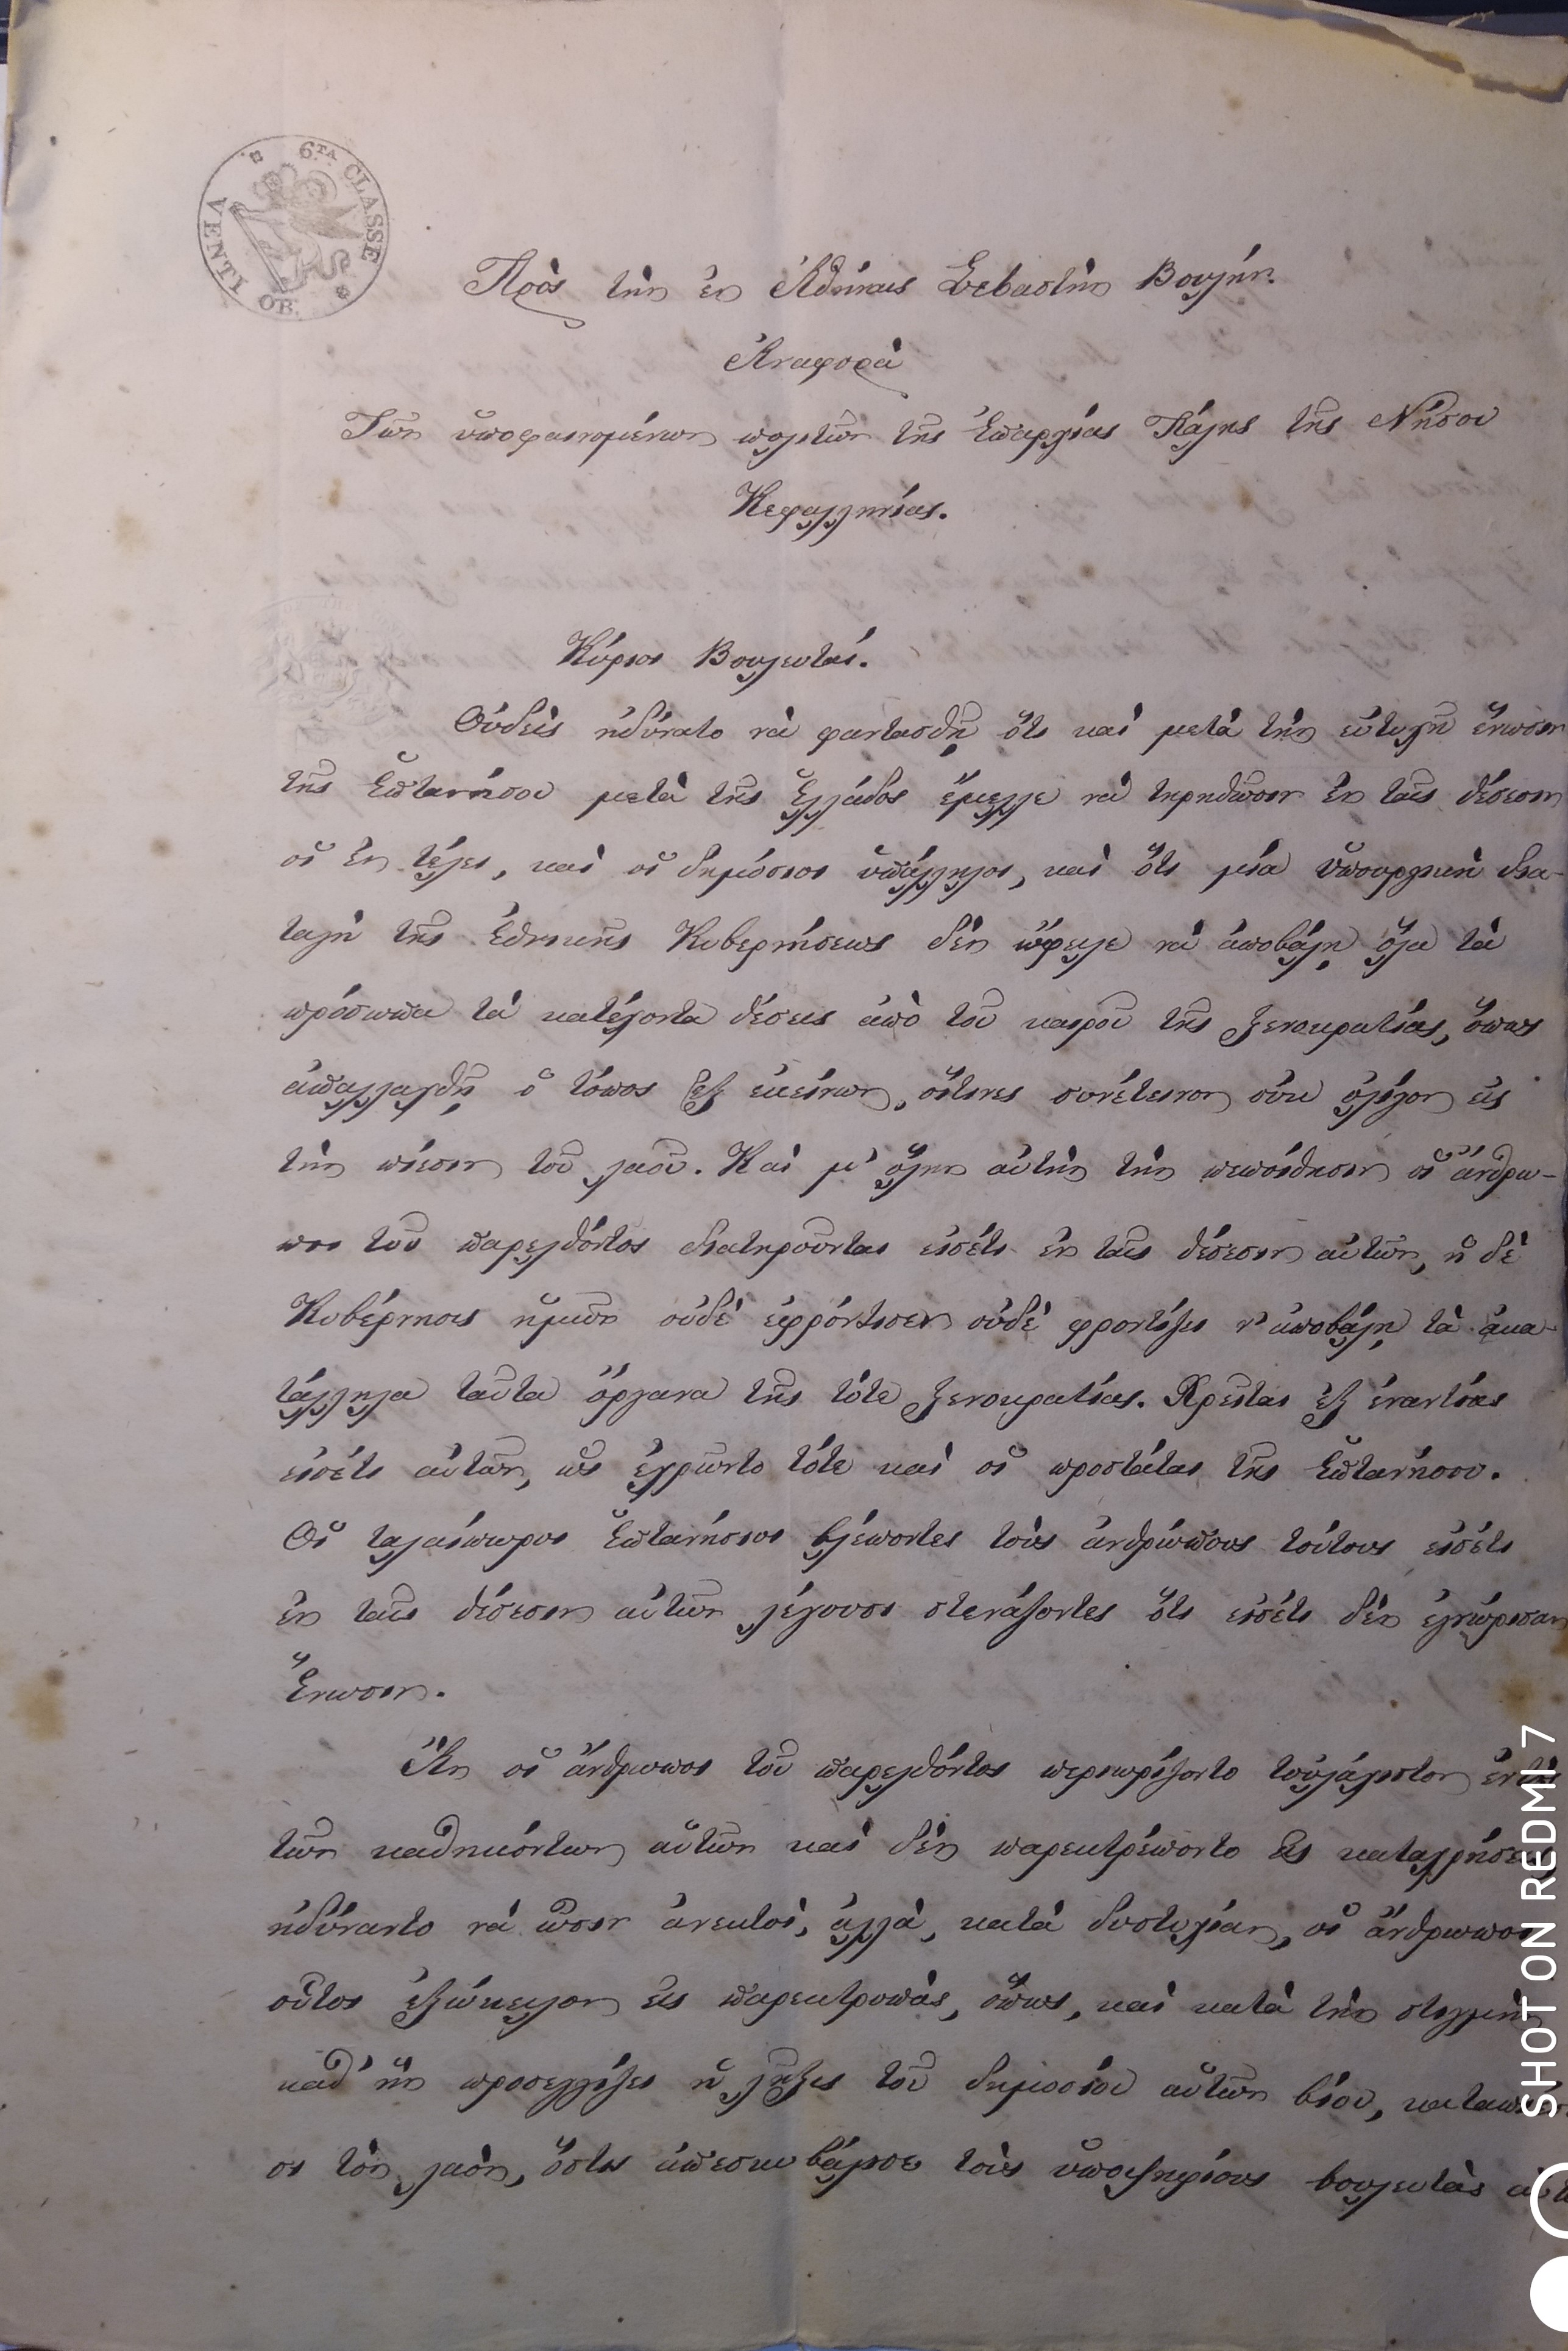 6TA CLASSE
VENTI OB.
Πρὸς τὴν ἐν Ἀθήναις Σεβαστὴν Βουλήν.
Ἀναφορὰ
Τῶν ὑποφαινομένων πολιτῶν τῆς Ἐπαρχίας Πάλης τῆς Νήσου
Κεφαλληνίας.
Κύριοι Βουλευταί.
Οὐδεὶς ἠδύνατο νὰ φαντασθῇ ὅτι καὶ μετὰ τὴν εὐτυχῆ ἕνωσιν
τῆς Ἑπτανήσου μετὰ τῆς Ἑλλάδος ἔμελλε νὰ τηρηθῶσιν ἐν ταῖς θέσεσιν
οἱ ἐν τέλει, καὶ οἱ δημόσιοι ὑπάλληλοι, καὶ ὅτι μία ὑπουργικὴ δια-
ταγὴ τῆς Ἐθνικῆς Κυβερνήσεως δὲν ὤφειλε νὰ ἀποβάλῃ ὅλα τὰ
πρόσωπα τὰ κατέχοντα θέσεις ἀπὸ τοῦ καιροῦ τῆς ξενοκρατίας, ὅπως
ἀπαλλαχθῇ ὁ τόπος ἐξ ἐκείνων, οἵτινες συνέτεινον οὐκ ὀλίγον εἰς
τὴν πίεσιν τοῦ λαοῦ. Καὶ μ' ὅλην αὐτὴν τὴν πεποίθησιν οἱ ἄνθρω-
ποι τοῦ παρελθόντος διατηροῦνται εἰσέτι ἐν ταῖς θέσεσιν αὐτῶν, ἡ δὲ
Κυβέρνησις ἡμῶν οὐδὲ ἐφρόντισεν οὐδὲ φροντίζει ν' ἀποβάλῃ τὰ ἀκα-
τάλληλα ταῦτα ὄργανα τῆς τότε ξενοκρατίας. Χρεῖται ἐξ ἐναντίας
εἰσέτι αὐτῶν, ὡς ἐχρῶντο τότε καὶ οἱ προστάται τῆς Ἑπτανήσου.
Οἱ ταλαίπωροι Ἑπτανήσιοι βλέποντες τοὺς ἀνθρώπους τούτους εἰσέτι
ἐν ταῖς θέσεσιν αὐτῶν λέγουσι στενάζοντες ὅτι εἰσέτι δὲν ἐγνώρισαν
Ἕνωσιν.
Ἂν οἱ ἄνθρωποι τοῦ παρελθόντος περιωρίζοντο τοὐλάχιστον ἐντὸς
τῶν καθηκόντων αὐτῶν καὶ δὲν παρεκτρέποντο εἰς καταχρήσεις
ἠδύναντο νὰ ὦσιν ἀνεκτοὶ, ἀλλὰ, κατὰ δυστυχίαν, οἱ ἄνθρωποι
οὗτοι ἐξώκειλον εἰς παρεκτροπὰς, ὅπως, καὶ κατὰ τὴν στιγμὴν
καθ' ἣν προσεγγίζει ἡ λῆξις τοῦ δημοσίου αὐτῶν βίου,
σι τὸν λαὸν, ὅστις ἀπεσκυβάλισε τοὺς ὑποψηφίους βουλευτὰς
SHOT ON REDMI 7